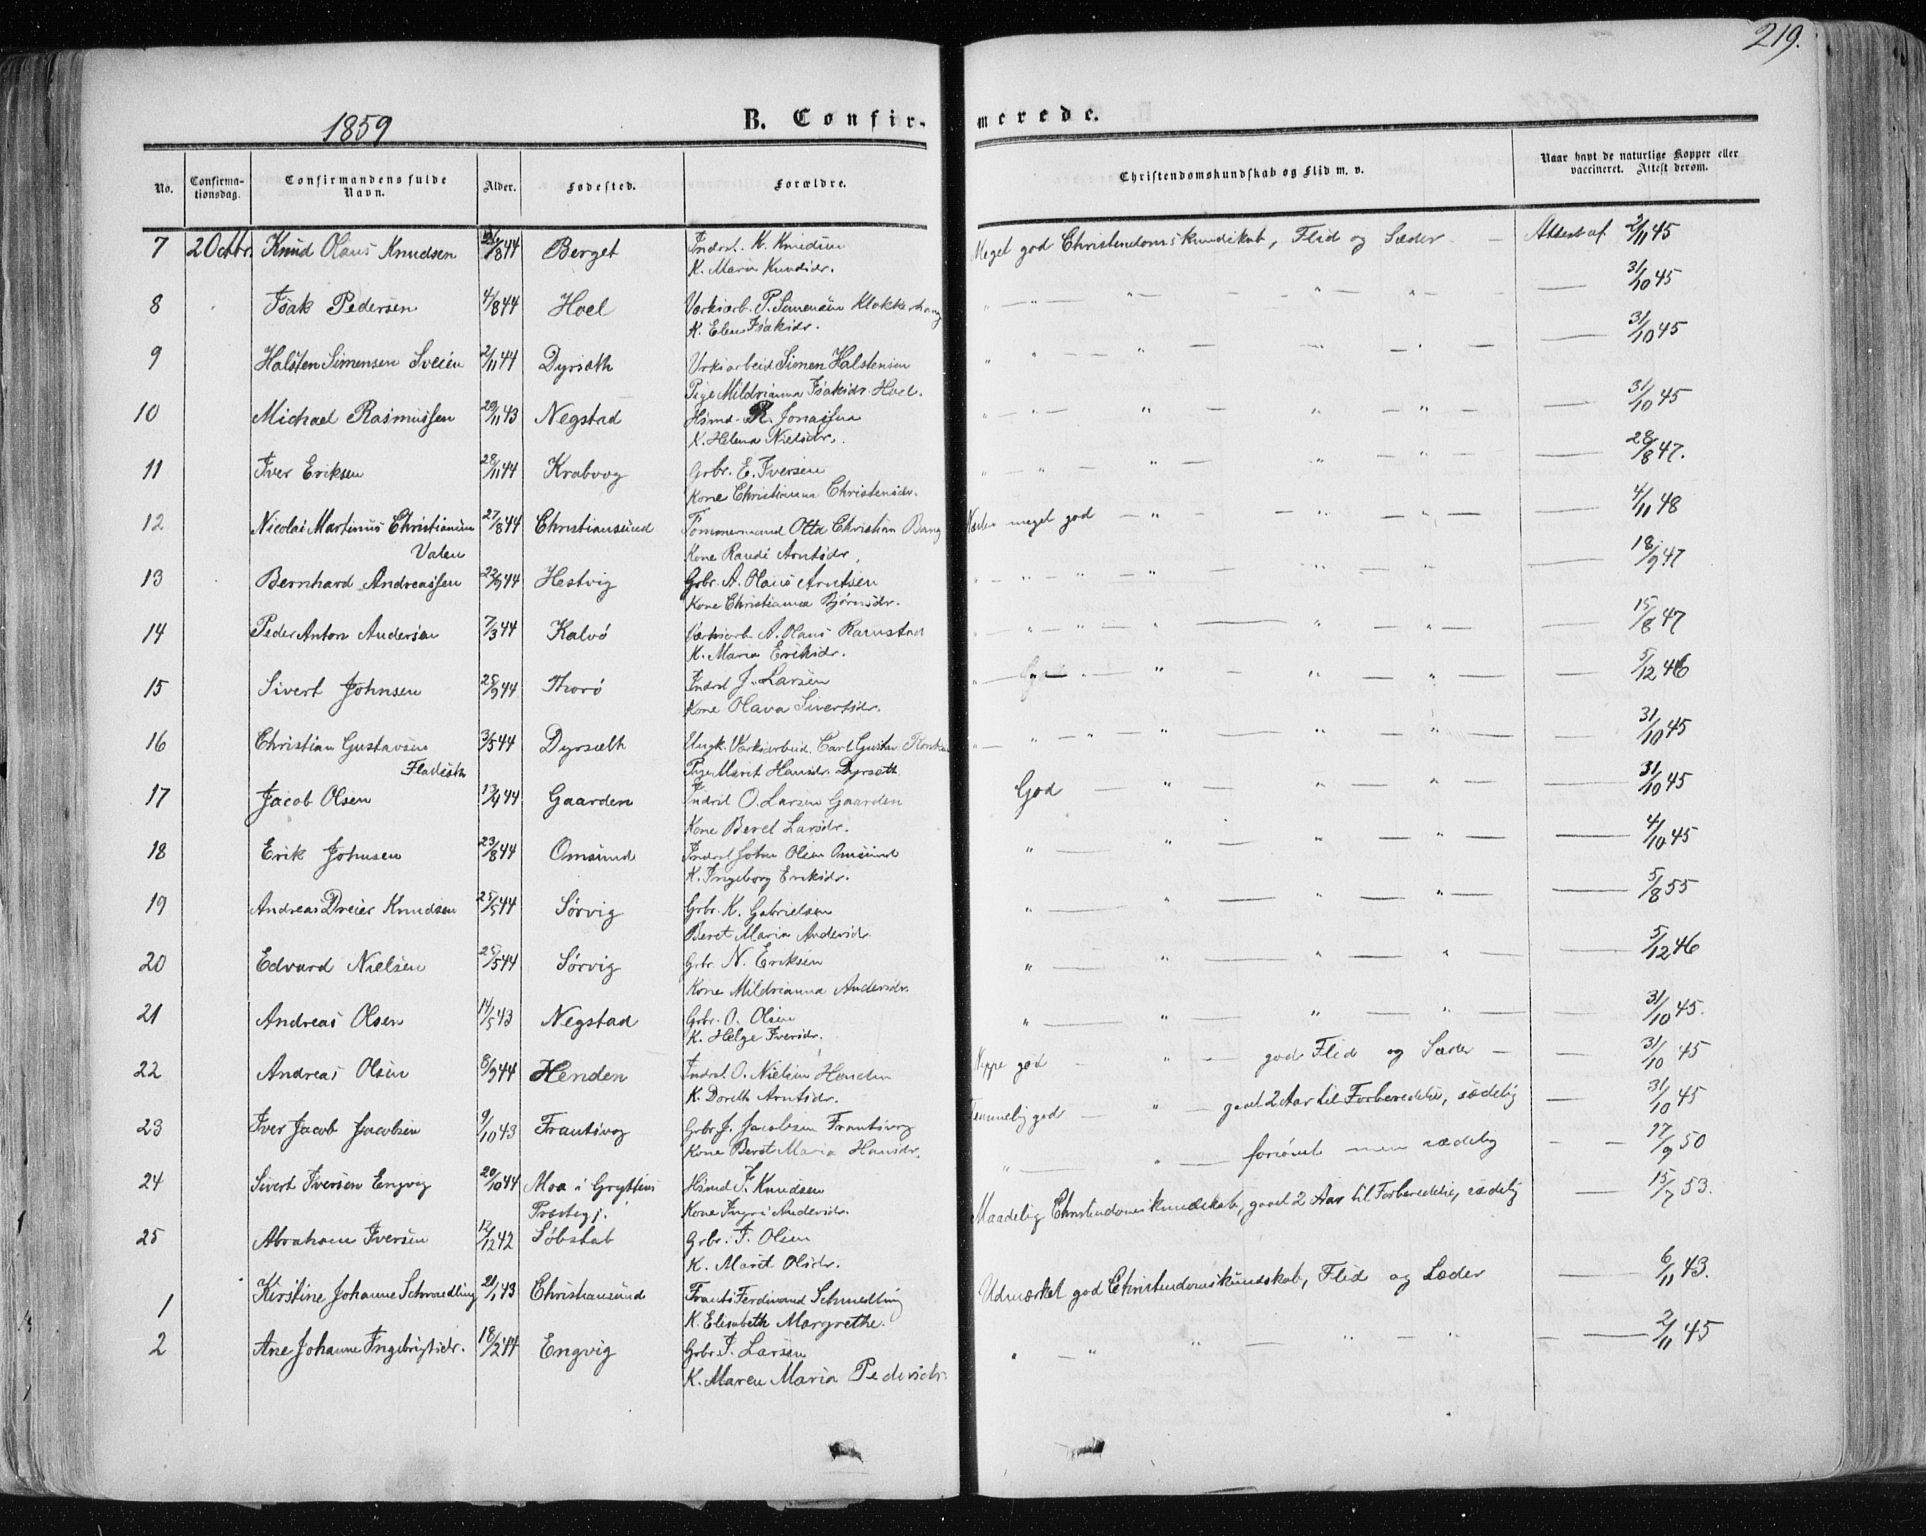 219.
1859
B. Confir- merede.
No. Confirmationsdag. Confirmandens fulde Navn. Alder. Fødested. Forældre. Christendomskundskab og Flid m. v. Naar havt de naturlige Kopper eller vaccineret. Attest derom.
7 2 Octbr. Knud Olaus Knudsen /8 44 Berget Indrst. K. Knudsen Meget god Christendomskundskab, Flid og Sæder — Attest af 2/11 45
K. Maria Knudsdr.
8 Isak Pedersen 4/8 44 Hoel Værksarb. P. Simensen Klokkerhaug " — " — " — " — 31/10 45
K. Elen Isaksdr.
9 Halsten Simensen Sveien 2/11 44 Dyrsæth Værksarbeid Simen Halstensen " — " — " — " — 31/10 45
Pige Mildrianna Isaksdr. Hoel.
10 Michael Rasmussen 29/11 43 Negstad Hsmd. R. Jonassen " — " — " — " — 31/10 45
K. Helena Nielsdr.
11 Iver Eriksen 28/11 44 Krabvog Grbr. E. Iversen " — " — " — " — 28/8 47.
Kone Christianna Christensdr.
12 Nicolai Martinus Christiansen 27/8 44 Christiansund Tømmermand Otto Christian Bang Næsten meget god — " — " — " — 4/11 48
Valen Kone Randi Arntsdr.
13 Bernhard Andreassen 22/9 44 Hestvig Grbr. A. Olaus Arntsen " — " — " — " — 18/9 47
Kone Christianna Bjørnsdr.
14 Peder Anton Andersen 7/3 44 Kalvø Værksarb. A. Olaus Ramstad " — " — " — " — 15/8 47
K. Maria Eriksdr.
15 Sivert Johnsen 25/9 44 Thorø Indrst J. Larsen " — God — " — " — " — 5/12 46
Kone Olava Sivertsdr.
16 Christian Gustavsen 3/5 44 Dyrsæth Ungk. Værksarbeid. Carl Gustav " — " — " — " — 31/10 45
Fladsæth Pige Marit Hansdr. Dyrsæth
17 Jacob Olsen 13/9 44 Gaarden Indrst O. Larsen Gaarden God — " — " — " — 31/10 45
Kone Beret Larsdr.
18 Erik Johnsen 23/8 44 Omsund Indrst John Olsen Omsund " — " — " — " — 4/10 45
K. Ingeborg Eriksdr.
19 Andreas Dreier Knudsen 25/5 44 Sørvig Grbr. K. Gabrielsen " — " — " — " — 5/8 55
Beret Maria Andersdr.
20 Edvard Nielsen 25/5 44 Sørvig Grbr. N. Eriksen " — " — " — " — 5/12 46
Kone Mildrianna Andersdr.
21 Andreas Olsen 14/5 43 Negstad Grbr. O. Olsen " — " — " — " — 31/10 45.
K. Helge Iversdr.
22 Andreas Olsen 8/9 44 Henden Indrst. O. Nielsen Henden Neppe god — " — god Flid og Sæder — 31/10 45
K. Doreth Arntsdr.
23 Iver Jacob Jacobsen 9/10 43 Frantsvog Grbr. J. Jacobsen Frantsvog Temmelig god — " — gaaet 2 Aar til Forberedelse, sædelig — 31/10 45
Kone Beret Maria Hansdr.
24 Sivert Iversen Engvig 20/10 44 Moa i Gryttens Hsmd I. Knudsen " — " — forsømt men sædelig — 17/9 50
Præstegj. Kone Ingri Andersdr.
25 Abraham Iversen 12/12 42 Søbstab Grbr. I. Olsen Maadelig Christendomskundskab, gaaet 2 Aar til Forberedelse, sædelig — 15/7 53.
K. Marit Olsdr.
1 Kirstine Johanne Schmedling 21/1 43 Christiansund Frants Ferdinand Schmedling Udmærket god Christendomskundskab, Flid og Sæder — 6/11 43.
K. Elisabeth Margrethe.
2 Ane Johanne Ingebrigtsdr. 18/2 44 Engvig Grbr. I. Larsen " — " — " — " — " — 2/11 45
K. Maren Maria Pedersdr.